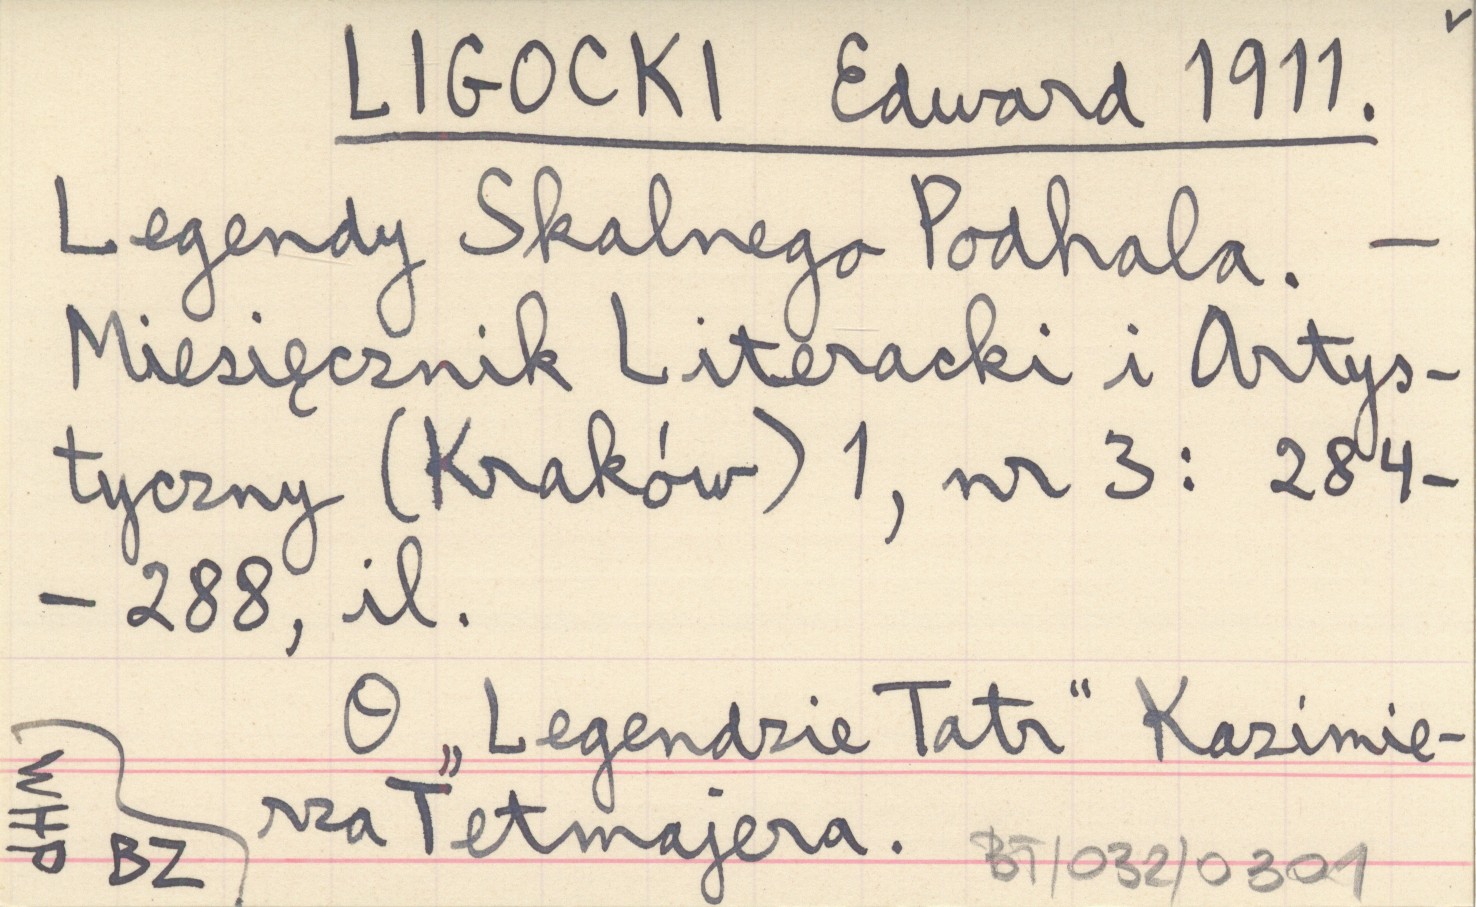 LIGOCKI Edward 1911.
Legendy Skalnego Podhala. —
Miesięcznik Literacki i Artys-
tyczny (Kraków) 1, nr 3: 284-
- 288, il.
O „Legendzie Tatr“ Kazimie-
rza Tetmajera.
WHP
BZ
BT/032/0301